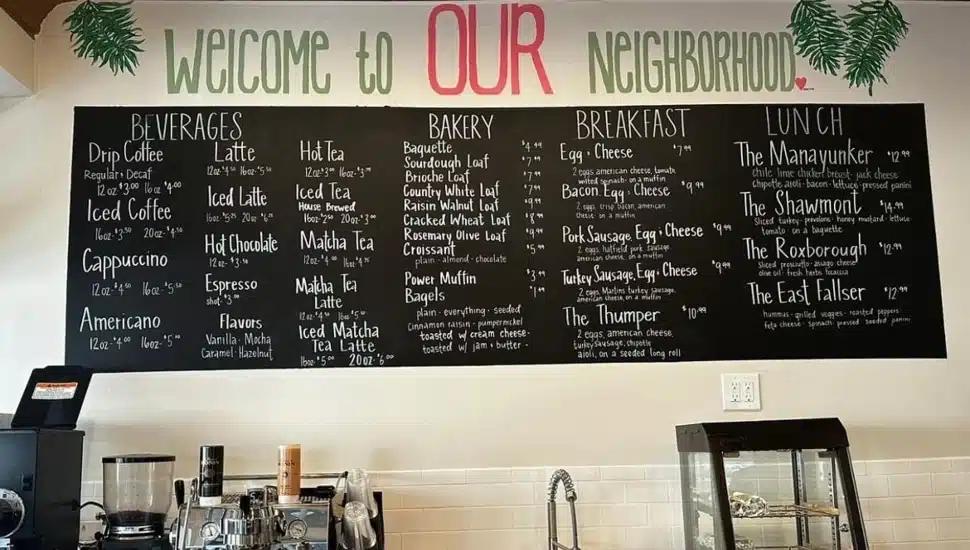 WELCOME to OUR NEIGHBORHOOD
BEVERAGES
Drip Coffee
Regular & Decaf
12oz $3.00 16oz $4.00
Iced Coffee
16oz- $3.50 20oz- $4.50
Cappuccino
12oz- $4.50 16oz- $5.50
Americano
12oz- $4.00 16oz- $5.00
Latte
12oz $4.50 16oz- $5.50
Iced Latte
16oz- 20oz
Hot Chocolate
12oz- $3.50
Espresso
shot- $3.00
Flavors
Vanilla · Mocha
Caramel · Hazelnut
Hot Tea
12oz 16oz-
Iced Tea
House Brewed
16oz- $2.50 20oz- $3.00
Matcha Tea
12oz- $4.00 16oz
Matcha Tea
Latte
12oz- $4.50 16oz $5.50
Iced Matcha
Tea Latte
16oz- $5.00 20oz- $6.00
BAKERY
Baquette $4.99
Sourdough Loaf $7.99
Brioche Loaf $7.99
Country White Loaf $7.99
Raisin Walnut Loaf $9.99
Cracked Wheat Loaf
Rosemary Olive Loaf $9.99
Croissant $5.99
plain - almond - chocolate
Power Muffin
Bagels $1.99
plain - everything - seeded
Cinnamon raisin - pumpernickel
toasted w/ cream cheese-
toasted w/ jam & butter-
BREAKFAST
Egg & Cheese $7.99
2 eggs american cheese, tomato,
wilted spinach - on a muffin
Bacon, Egg & Cheese $9.99
2 eggs, crisp bacon, american
cheese - on a muffin
Pork Sausage, Egg & Cheese $9.99
2 eggs, hatfield pork sausage,
american cheese, on a muffin
Turkey Sausage, Egg & Cheese $9.99
2 eggs, Martins turkey sausage,
american cheese, on a muffin
The Thumper $10.99
2 eggs, american cheese,
turkey sausage, chipotle
aioli, on a seeded long roll
LUNCH
The Manayunker $12.99
chile lime chicken breast - jack cheese
chipotle aioli - bacon - lettuce - pressed panini
The Shawmont $14.99
Sliced turkey - provolone - honey mustard - lettuce
tomato - on a baguette
The Roxborough $12.99
Sliced prosciutto - asiago cheese
olive oil - fresh herbs focaccia
The East Fallser $12.99
hummus - grilled veggies - roasted peppers
feta cheese - spinach pressed seeded panini